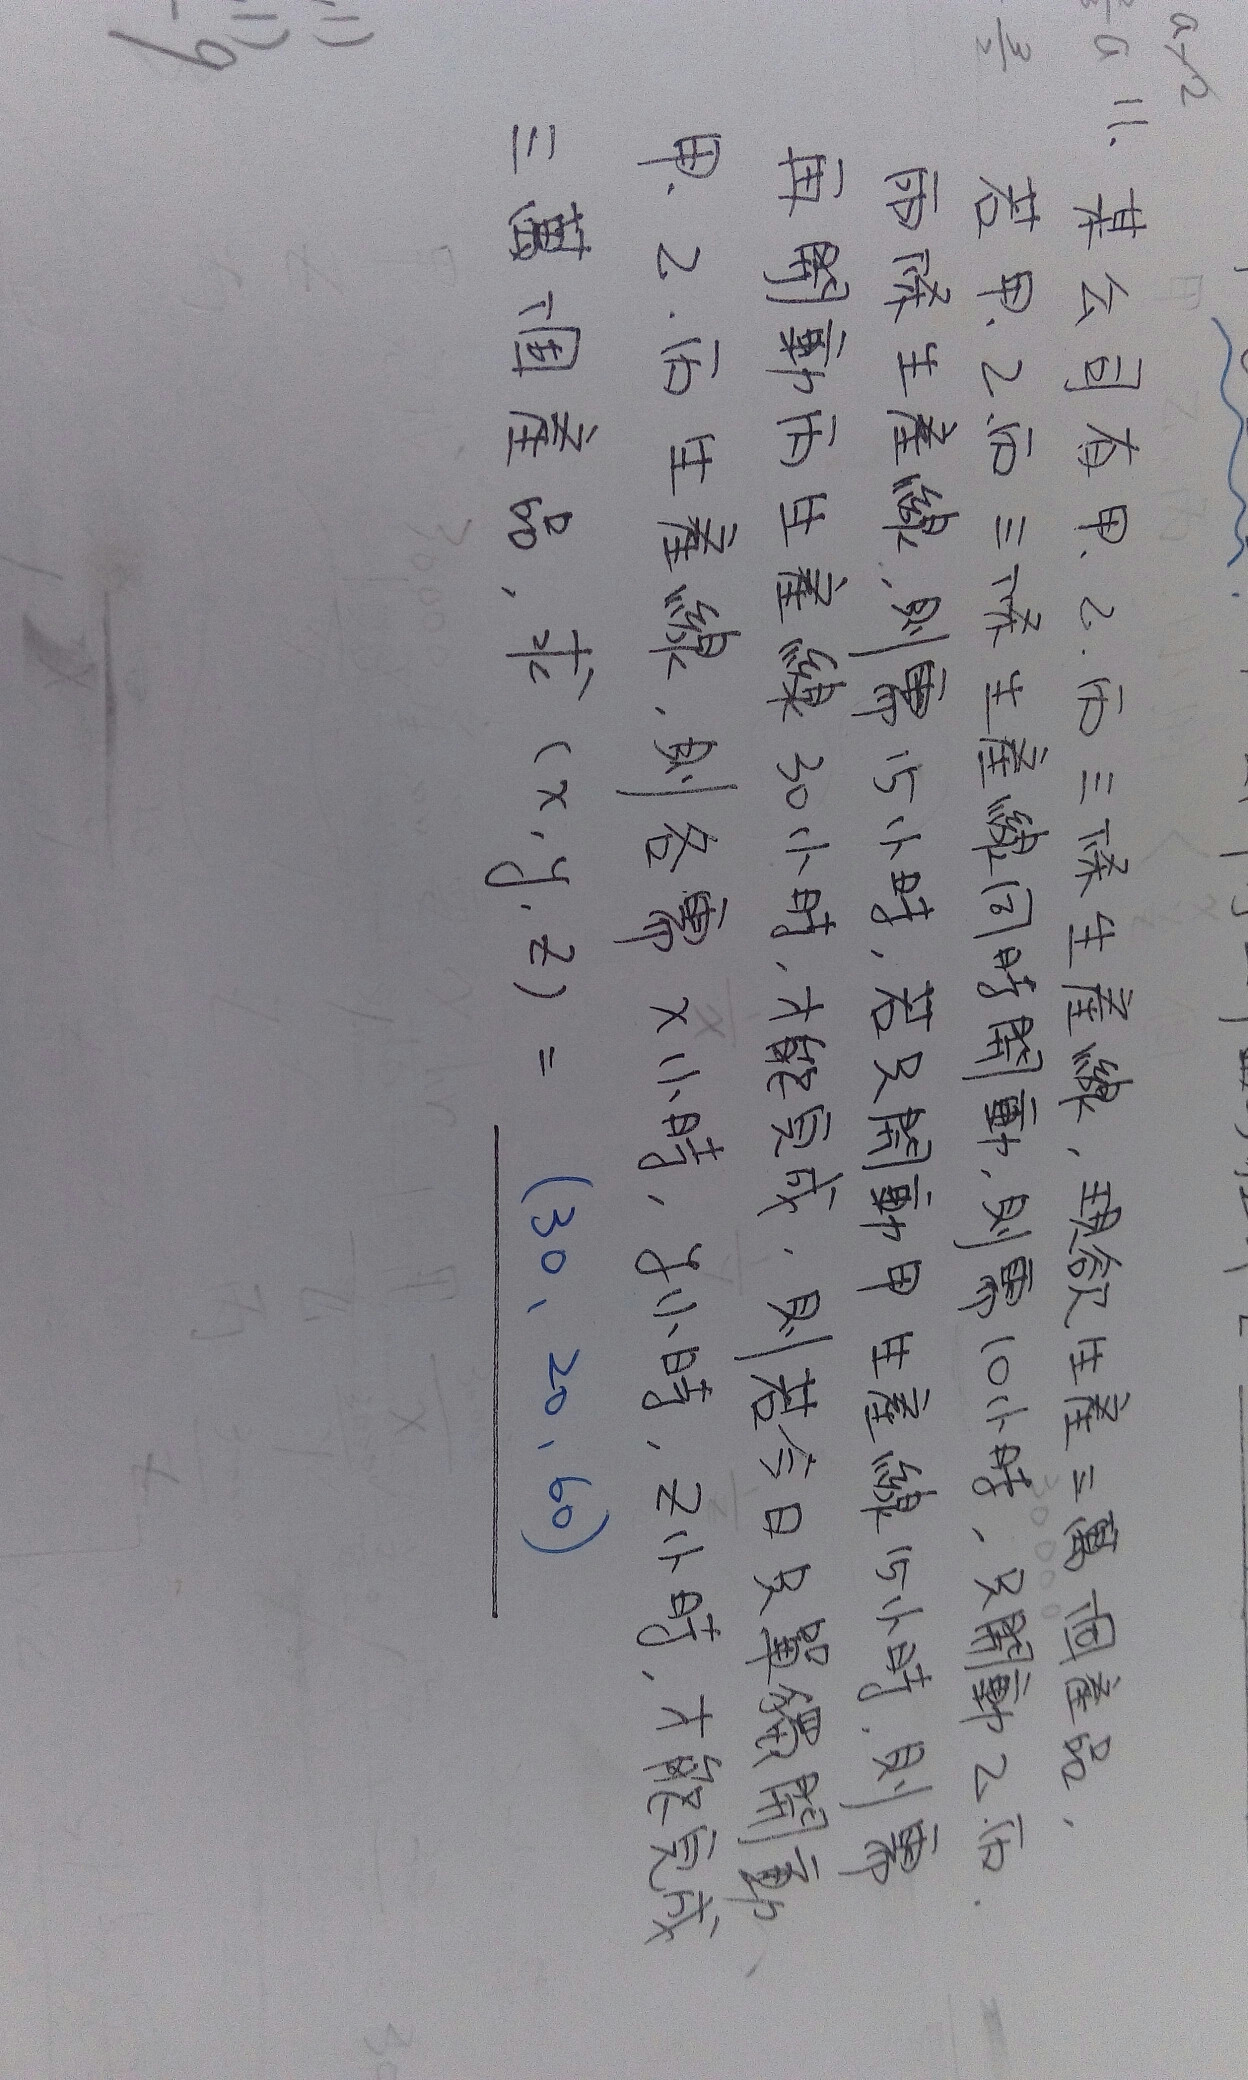 11、某公司有甲、乙、丙三條生產線,現欲生產三萬個產品,
若甲、乙、丙三條生產線同時開動,則需10小時,只開動乙、丙、
兩條生產線,則需15小時,若只開動甲生產線15小時,則需
再開動丙生產線30小時,才能完成,則若今日只單獨開動
甲、乙、丙生產線,則各需 x小時,y小時,z小時,才能完成
三萬個產品,求 (x,y,z) = (30、20、60)